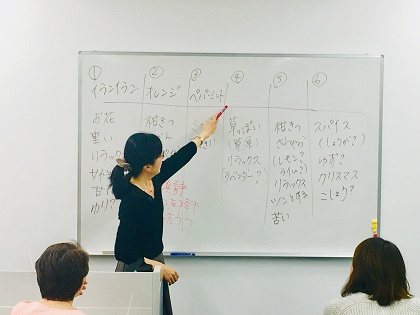 ① ② ③ ④ ⑤ ⑥
イランイラン オレンジ ペパーミント
お花
重い
リラックス
甘い
ゆり?
柑きつ
草っぽい
(草原)
リラックス
ラベンダー?
柑きつ
さわやか
(レモン?
ライム?)
リラックス
ツンとする
苦い
スパイス
(しょうが?)
ゆず?
クリスマス
こしょう?